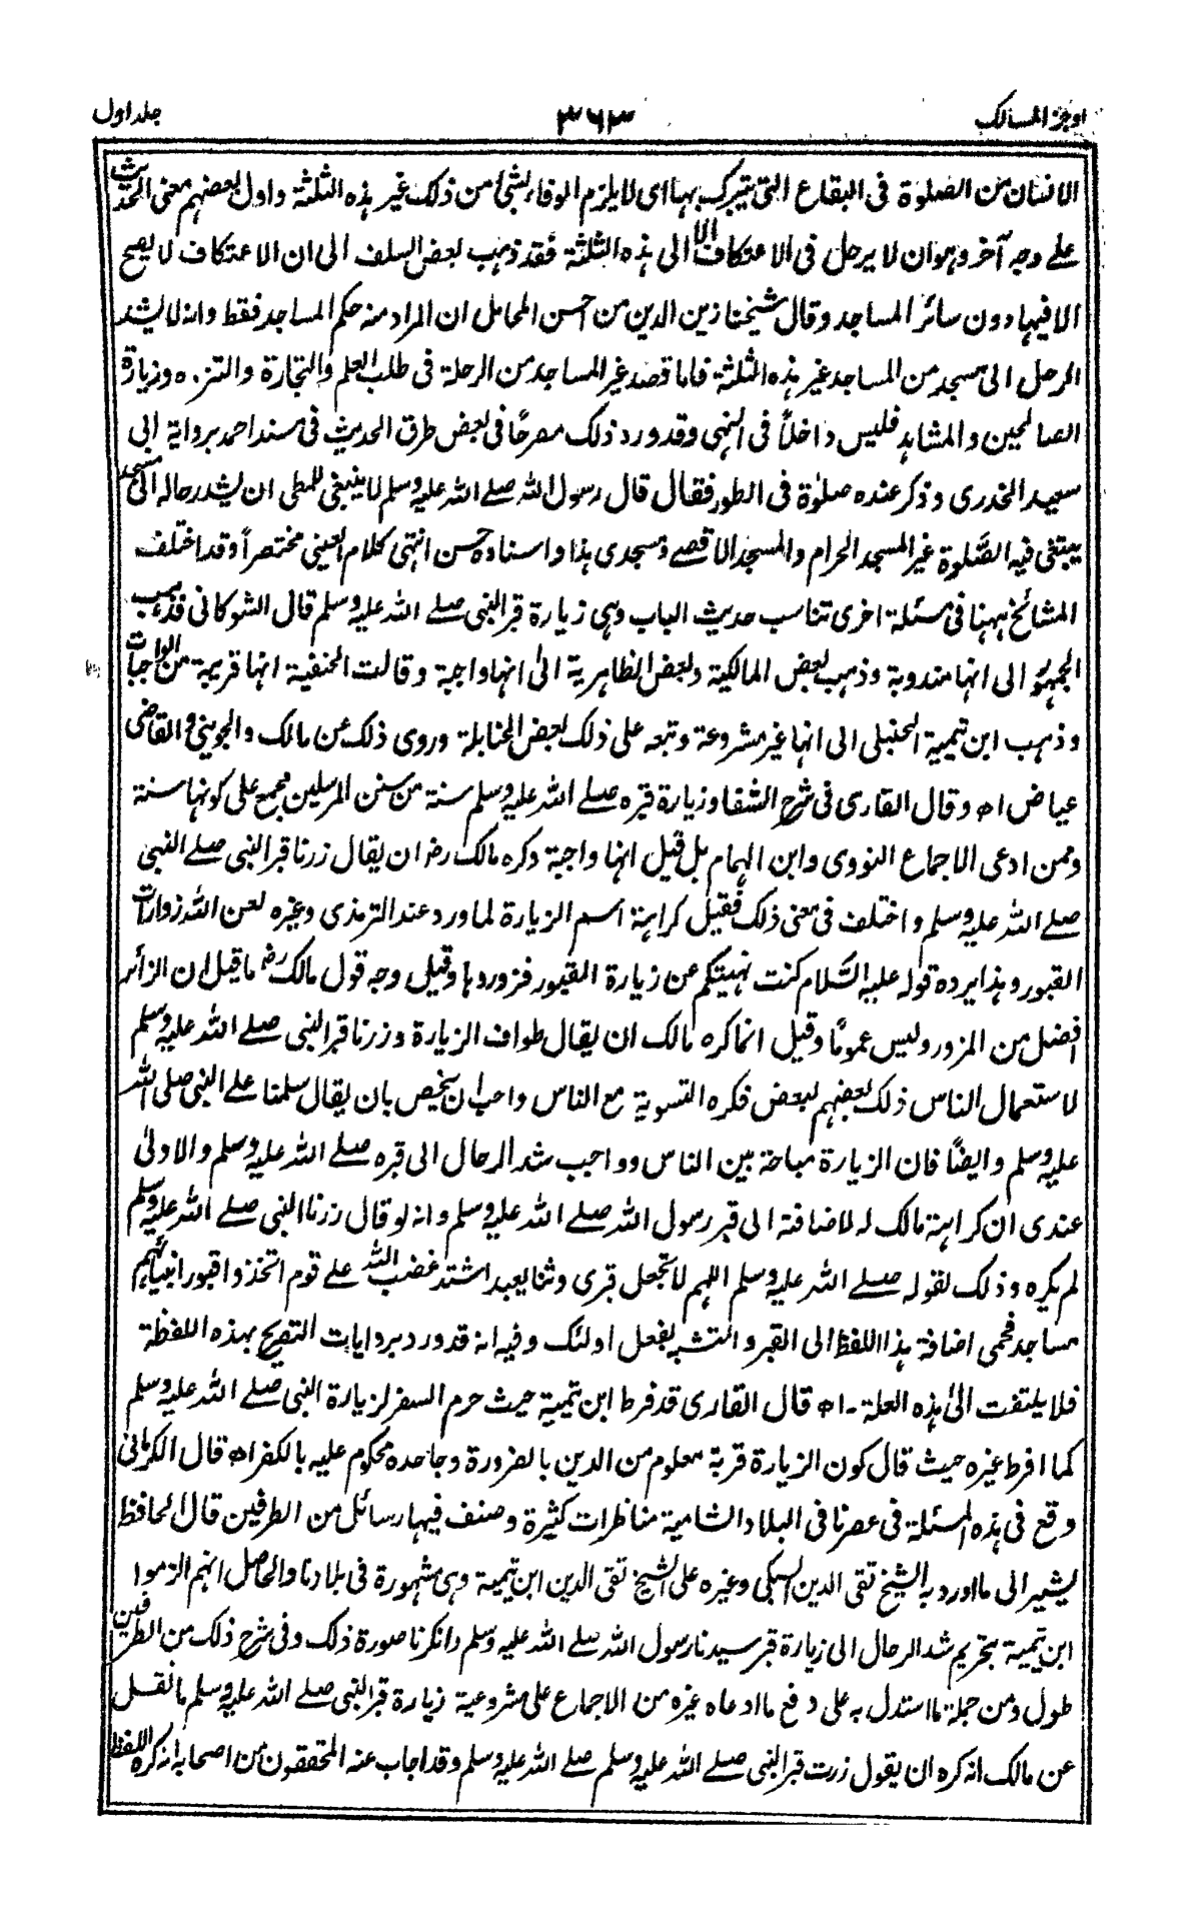 اوجز المسالک
۳۶۳
جلد اول
الانسان من الصلوٰة فی البقاع التی یتبرک بہا ای لا یلزم الوفاء بشئ من ذلک غیر ہذہ الثلثة واول بعضہم معنی الحدیث
علے وجہ آخر وہو ان لا یرحل فی الاعتکاف الا الی ہذہ الثلثة فقد ذہب بعض السلف الی ان الاعتکاف لا یصح
الا فیہا دون سائر المساجد وقال شیخنا زین الدین من احسن المحامل ان المراد منہ حکم المساجد فقط وانہ لا یشد
الرحل الی مسجد من المساجد غیر ہذہ الثلثة فاما قصد غیر المساجد من الرحلة فی طلب العلم والتجارة والتنزہ وزیارة
الصالحین والمشاہد فلیس داخلاً فی النہی وقد ورد ذلک مصرحًا فی بعض طرق الحدیث فی مسند احمد بروایة ابی
سعید الخدری وذکر عندہ صلوٰة فی الطور فقال قال رسول اللہ صلے اللہ علیہ وسلم لا ینبغی للمطی ان یشد رحالہ الی مسجد
یبتغی فیہ الصَّلوة غیر المسجد الحرام والمسجد الاقصے ومسجدی ہذا واسنادہ حسن انتہی کلام العینی مختصراً وقد اختلف
المشائخ ہہنا فی مسئلة اخری تناسب حدیث الباب وہی زیارة قبر النبی صلے اللہ علیہ وسلم قال الشوکانی قد ذہب
الجمہور الی انہا مندوبة وذہب بعض المالکیة وبعض الظاہریة الیٰ انہا واجبة وقالت الحنفیة انہا قریبة من الواجبات
وذہب ابن تیمیة الحنبلی الی انہا غیر مشروعة وتبعہ علی ذلک بعض الحنابلة وروی ذلک عن مالک والجوینی والقاضی
عیاض اھ وقال القاری فی شرح الشفا وزیارة قبرہ صلے اللہ علیہ وسلم سنة من سنن المرسلین مجمع علی کونہا سنة
وممن ادعی الاجماع النووی وابن الہمام بل قیل انہا واجبة وکرہ مالک رض ان یقال زرنا قبر النبی صلے النبی
صلے اللہ علیہ وسلم واختلف فی معنی ذلک فقیل کراہة اسم الزیارة لما ورد عند الترمذی وغیرہ لعن اللہ زوارات
القبور وہذا یردہ قولہ علیہ السَّلام کنت نہیتکم عن زیارة القبور فزوروہا وقیل وجہ قول مالک رض ما قیل ان الزائر
افضل من المزور ولیس عمومًا وقیل انما کرہ مالک ان یقال طواف الزیارة وزرنا قبر النبی صلے اللہ علیہ وسلم
لاستعمال الناس ذلک بعضہم لبعض فکرہ التسویة مع الناس واحب ان یخیص بان یقال سلمنا علے النبی صلی اللہ
علیہ وسلم وایضًا فان الزیارة مباحة بین الناس وواجب شد الرحال الی قبرہ صلے اللہ علیہ وسلم والاولیٰ
عندی ان کراہة مالک لہ للاضافة الی قبر رسول اللہ صلے اللہ علیہ وسلم وانہ لو قال زرنا النبی صلے اللہ علیہ وسلم
لم یکرہ وذلک لقولہ صلے اللہ علیہ وسلم اللہم لا تجعل قبری وثنا یعبد اشتد غضب اللہ علے قوم اتخذوا قبور انبیائہم
مساجد فحمی اضافة ہذا اللفظ الی القبر والتشبہ بفعل اولئک وفیہ انہ قد ورد بروایات التصریح بہذہ اللفظة
فلا یلتفت الیٰ ہذہ العلة۔ اھ قال القاری قد فرط ابن تیمیة حیث حرم السفر لزیارة النبی صلے اللہ علیہ وسلم
کما افرط غیرہ حیث قال کون الزیارة قربة معلوم من الدین بالضرورة وجاحدہ محکوم علیہ بالکفر اھ قال الکرمانی
وقع فی ہذہ المسئلة فی عصرنا فی البلاد الشامیة مناظرات کثیرة وصنف فیہا رسائل من الطرفین قال الحافظ
یشیر الی ما اورد بہ الشیخ تقی الدین السبکی وغیرہ علی الشیخ تقی الدین ابن تیمیة وہی مشہورة فی بلادنا والحاصل انہم الزموا
ابن تیمیة بتحریم شد الرحال الی زیارة قبر سیدنا رسول اللہ صلے اللہ علیہ وسلم وانکرنا صورة ذلک وفی شرح ذلک من الطرفین
طول ومن جملة ما استدل بہ علی دفع ما ادعاہ غیرہ من الاجماع علی مشروعیة زیارة قبر النبی صلے اللہ علیہ وسلم ما نقل
عن مالک انہ کرہ ان یقول زرت قبر النبی صلے اللہ علیہ وسلم صلے اللہ علیہ وسلم وقد اجاب عنہ المحققون من اصحابہ انہ کرہ اللفظ